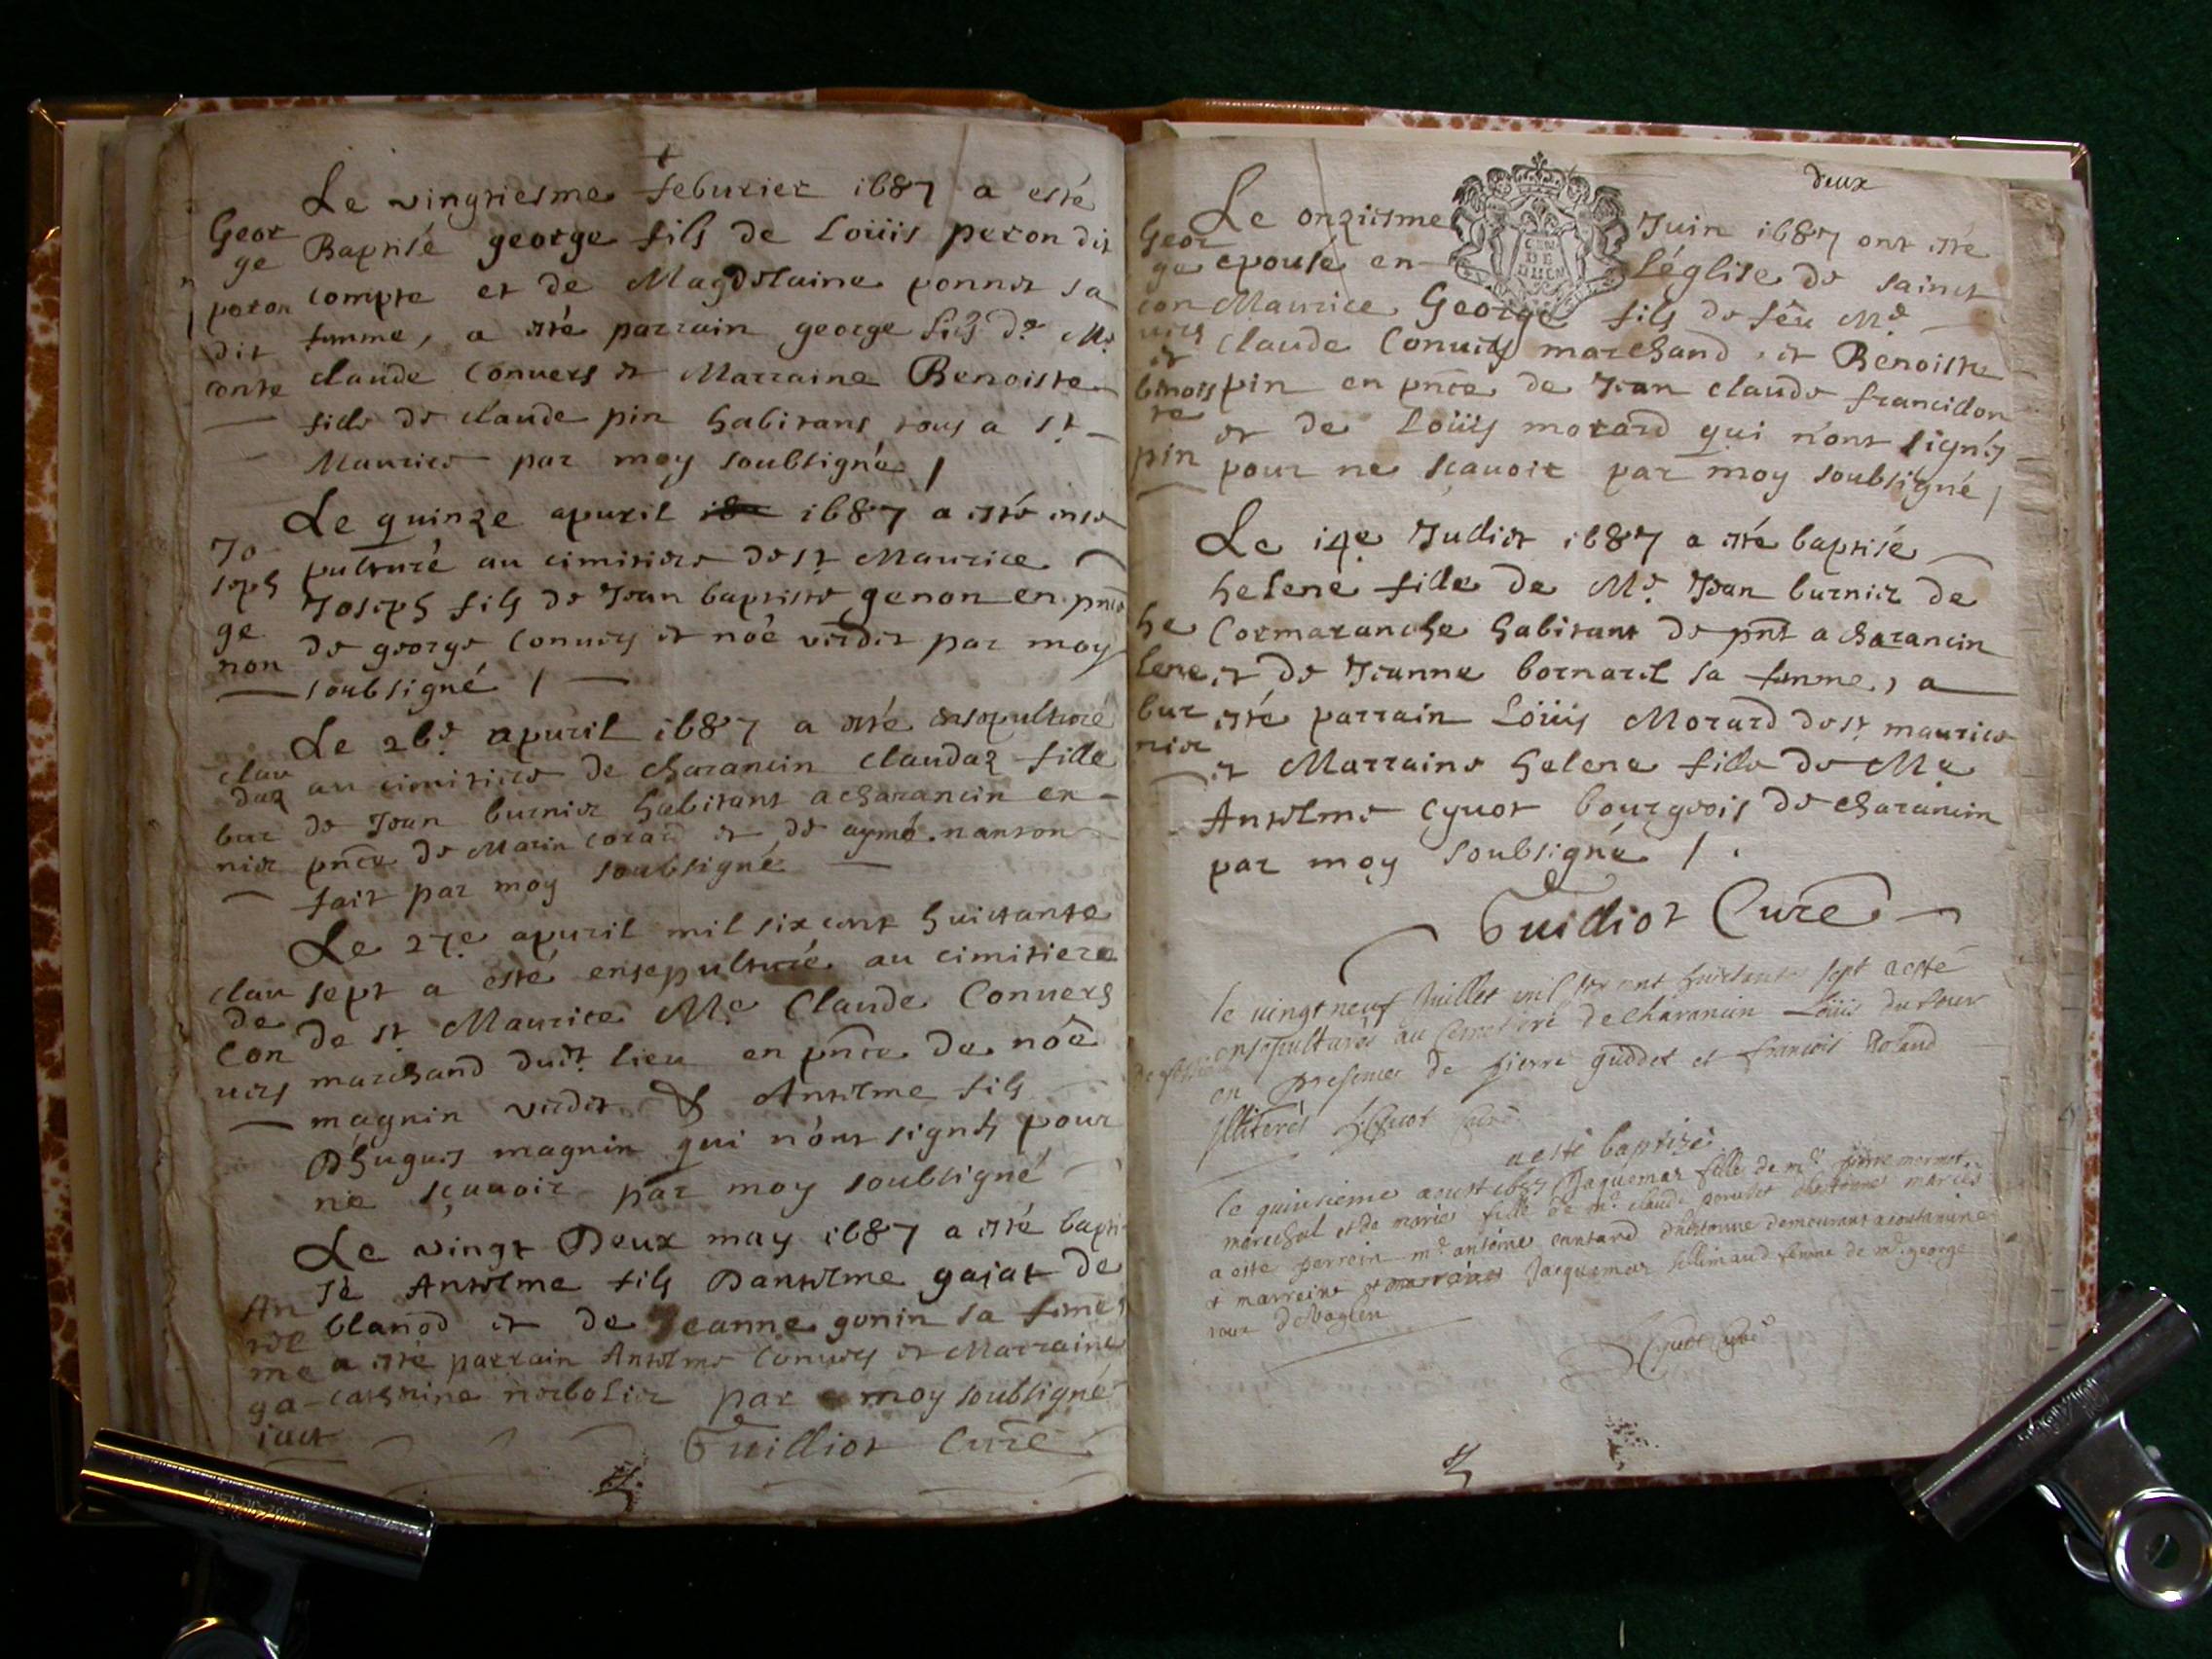 Le vingtiesme feburier 1687 a esté
Geor
ge
peron
dit
conte
Baptisé george fils de Loüis peron dit
compte et de Magdelaine ponnet sa
femme, a esté parrain george fils de Me
claude Convers et Marraine Benoiste
fille de claude pin habitans tous a st
Maurice par moy soubsigné /
Le quinze apuril 1687 a esté ense
Jo
seph
ge
non
pulturé au cimitiere de st Maurice
Joseph fils de Jean baptiste genon en pnce
de george Convers et noé verdet par moy
soubsigné /
Le 26e apuril 1687 a esté ensepulturé
clau
daz
bur
nier
au cimitiere de charancin claudaz fille
de Jean burnier habitant a charancin en
pnce de Marin corard et de aymé nanton
fait par moy soubsigné
Le 27e apuril mil six cent huictante
clau
de
Con
uers
sept a esté ensepulturé au cimitiere
de st Maurice Me Claude Convers
marchand dudt lieu en pnce de noé
magnin verdet & Antelme fils
D'hugues magnin qui n'ont signés pour
ne sçauoir par moy soubsigné
Le vingt Deux may 1687 a esté bapti
An
tel
me
ga
iact
sé Antelme fils Dantelme gajat de
blanod et de Jeanne gonin sa feme,
a esté parrain Antelme Convers et Marraine
catherine par moy soubsigné
Guilliot Curé
deux
Le onziesme Juin 1687 ont esté
Geor
ge
con
uers
et
benois
te
pin
epousé en l'église de sainct
Maurice George fils de feu Me
Claude Conuers marchand, et Benoiste
pin en pnce de Jean claude francillon
et de Loüis morard qui n'ont signés
pour ne sçauoir par moy soubsigné /
Le 14e Juilliet 1687 a esté baptisé
helene fille de Me Jean burnier de
he
lene
bur
nier
Cormaranche habitant de pnt a charancin
et de Jeanne bornard sa femme, a
esté parrain Loüis Morard de st maurice
et Marraine helene fille de Me
Antelme Cyuot bourgeois de charancin
par moy soubsigné /.
Guilliot Curé
le vingt neuf Juillet mil six cent huictante sept a esté
ensepulturés au Cemetiere de charancin Loüis du four
en presence de pierre guddet et francois Roland
Illiterés Curé
a esté baptizé
le quinsieme aoust 1687 Jaquemaz fille de me pierre mermet
marechal et de marie fille de me claude
a esté perrein me antoine demeurant a
et marreine Jacquemaz femme de me george